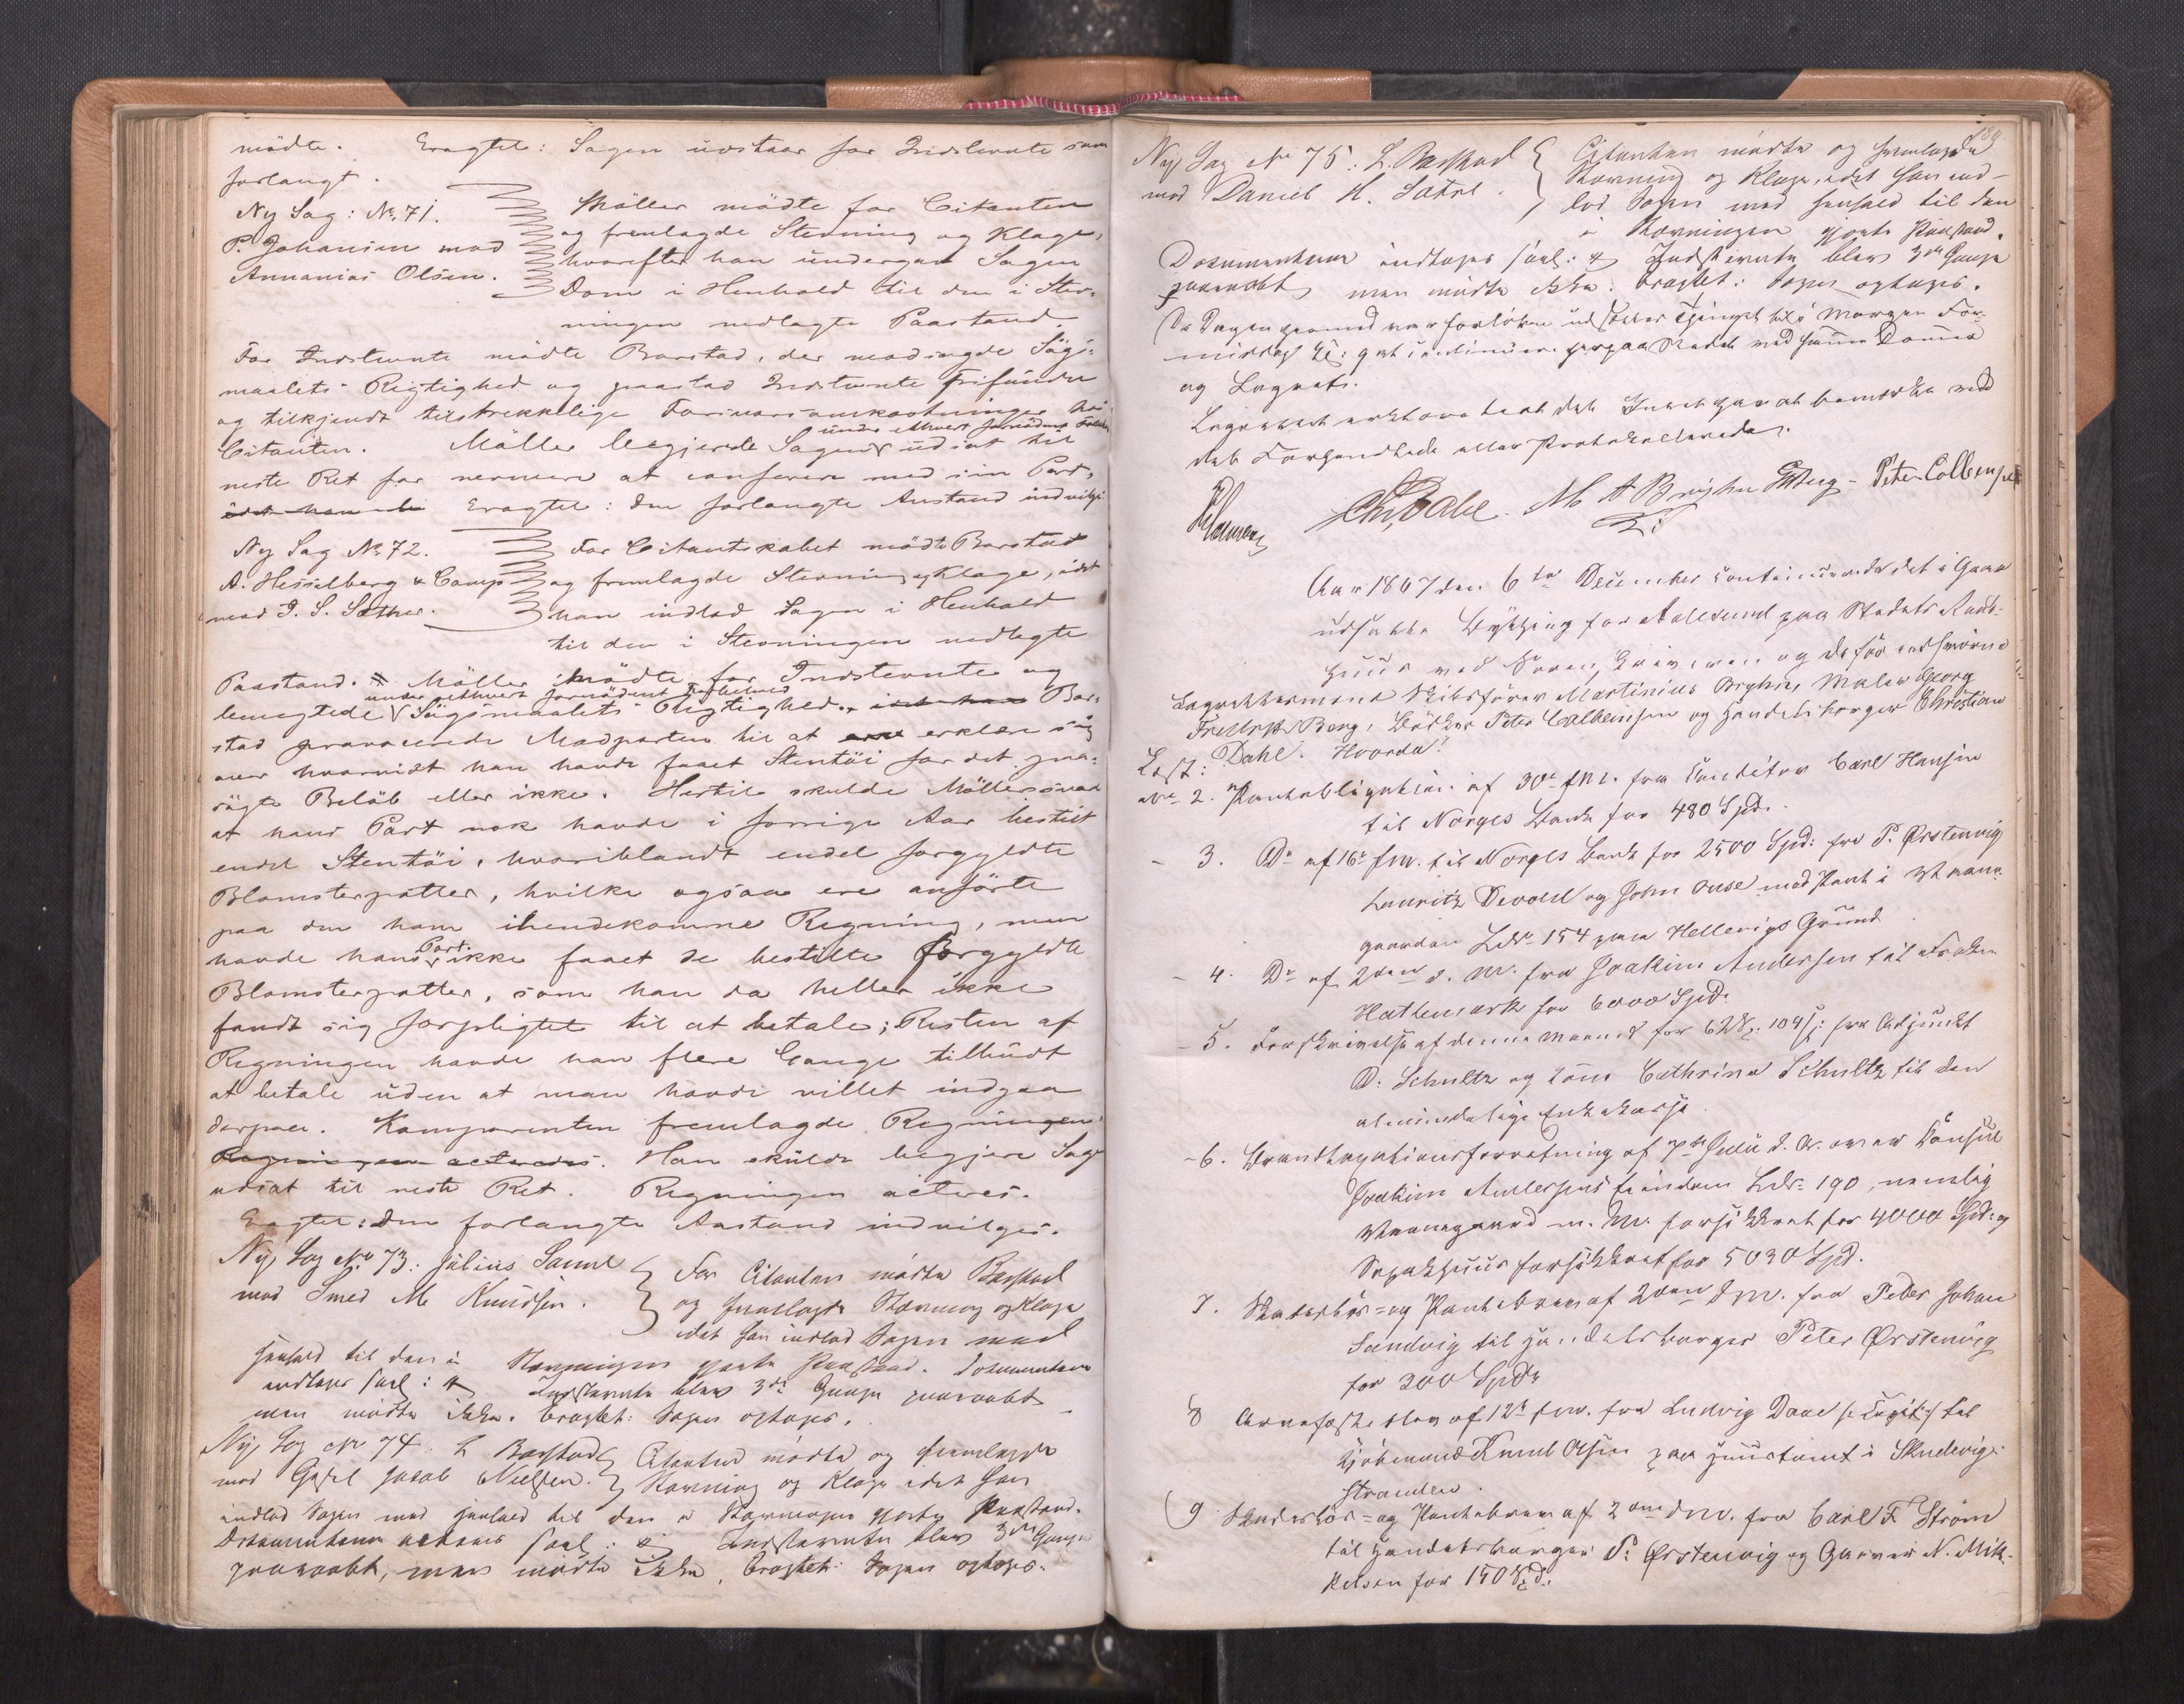 mödte. Eragtet: Sagen udstaar for Indstevnte som
forlangt.
Ny Sag: No. 71.
P. Johansen mod
Annanias Olsen.
Möller mödte for Citanten
og fremlagde Stevning og Klage,
hvorefter han undergav Sagen
Dom i Henhold til den i Stev-
ningen nedlagte Paastand.
For Indstevnte mödte Barstad, der modsagde Sögs-
maalets Rigtighed og paastod Indstevnte frifunden
og tilkjendt tilstrekkelige Forsvarsomkostninger hos
Citanten. Möller begjerede Sagen udsat til
under ethvert fornödent
neste Ret for nermere at conferere med sin Part,
Eragtet: den forlangte Anstand indvilges
Ny Sag No. 72.
A. Hesselberg & Comp
mod J. S. Sæther.
For Citantskabet mödte Barstad
og fremlagde Stevning og Klage, idet
han indlod Sagen i Henhold
til den i Stevningen nedlagte
Paastand. Möller mödte for Indstevnte og
under ethvert fornödent Forbehold
benegtede Sögsmaalets Rigtighed. Bar-
stad provocerede Modparten til at erklære sig
over hvorvidt han havde faaet Stentöi for det paa-
sögte Belöb eller ikke. Hertil skulde Möller svare
at hans Part nok havde i forrige Aar bestilt
endel Stentöi, hvoriblandt endel forgyldte
Blomsterpotter, hvilke ogsaa ere anförte
paa den ham ihendekomne Regning, men
havde hans Part ikke faaet de bestilte forgyldte
Blomsterpotter, som han da heller ikke
fandt sig forpligtet til at betale; Resten af
Regningen havde han flere Gange tilbudt
at betale uden at man havde villet indgaa
derpaa. Komparenten fremlagde Regningen
Regningen acteredes. Han skulde begjere Sagen
udsat til neste Ret. Regningen acteres.
Eragtet: Den forlangte Anstand indvilges.
Ny Sag No 73: Julius Sanne
mod Smed M. Knudsen.
For Citanten mödte Barstad
og fremlagde Stævning og Klage
idet han indlod Sagen med
Henhold til den i Stævningen gjorte Paastand. Dokumenterne
indtages saal: Indstevnte blev 3de Gange paaraabt
men mödte ikke. Eragtet: Sagen optages.
Ny Sag No 74: L Barstad
mod Jacob Nielsen.
Citanten mödte og fremlagde
Stævning og Klage idet han
indlod Sagen med Henhold til den i Stævningen gjorte Paastand.
Dokumenterne acteres saal: Indstævnte blev 3de Gange
paaraabt, men mödte ikke. Eragtet: Sagen optages.
Ny Sag No 75: L. Barstad
mod Daniel H. Sætre.
Citanten mödte og fremlagde
Stævning og Klage, idet han ind-
lod Sagen med Henhold til den
i Stævningen gjorte Paastand.
Dokumenterne indtages saal: Indstevnte blev 3de Gange
paaraabt men mödte ikke: Eragtet: Sagen optages.
Da Dagen hermed var forlöben udsattes Thinget til i Morgen For-
middag Kl: 9 at continuere herpaa Stedet med samme Domer
og Lagret.
Lagrettet erklærede at det Intet har at bemærke ved
det Forhandlede eller Protokollerede.
Chr. Dahl. M A Bryhn GBerg - Peter Colbensen
Aar 1867 den 6te December continuerede det i Gaar
udsatte Bything for Aalesund paa Stedets Raad-
huus med Soren, og de før edsvorne
Lagrettesmænd Skibsförer Martinius Bryhn, Maler Georg
Fredrik Berg, Bödker Peter Colbeinsen og Handelsborger Christian
Dahl. Hvorda:
Læst:
No 2. Pantobligation af 30te f.M. fra Conditor Carl Hansen
til Norges Bank for 480 Spd.
- 3. Do af 16de f.M. til Norges Bank for 2500 Spd: fra P. Ørstenvig
Lauritz Devold og John Ouse med Pant i Vaane-
gaarden LNo 154 paa Hellevigs Grund
- 4. Do af 2den d. M. fra Joakim Andersen til Fröken
Hattemark for 6000 Spd.
- 5. Forskrivelse af denne Maaned for 62 Spd: 104 s: fra Adjunkt
D. Schultz og Cathrine Schultz til den
almindelige Enkekasse.
- 6. Brandtaxationsforretning af 7de Juli d. A. over Konsul
Joakim Andersens Eiendom LNo 190, nemlig
Vaanegaard m. M. forsikkret for 4000 Spd: og
Sepakhuus forsikkret for 5030 Spd.
7. Skadeslös- og Pantebrev af 2den d.M. fra Peder Johan
Sandvig til Handelsborger Peter Ørstenvig
for 300 Spd.
8 Arvefæstebrev af 12te f.M. fra Ludvig Daae til
Kjöbmand Knud Olsen paa Huustomt i Skudevigs-
stranden.
9 Skadeslös- og Pantebrev af 2den d.M. fra Carl F Ström
til Handelsborger P. Ørstenvig og Garver N. Mik-
kelsen for 150 Spd.